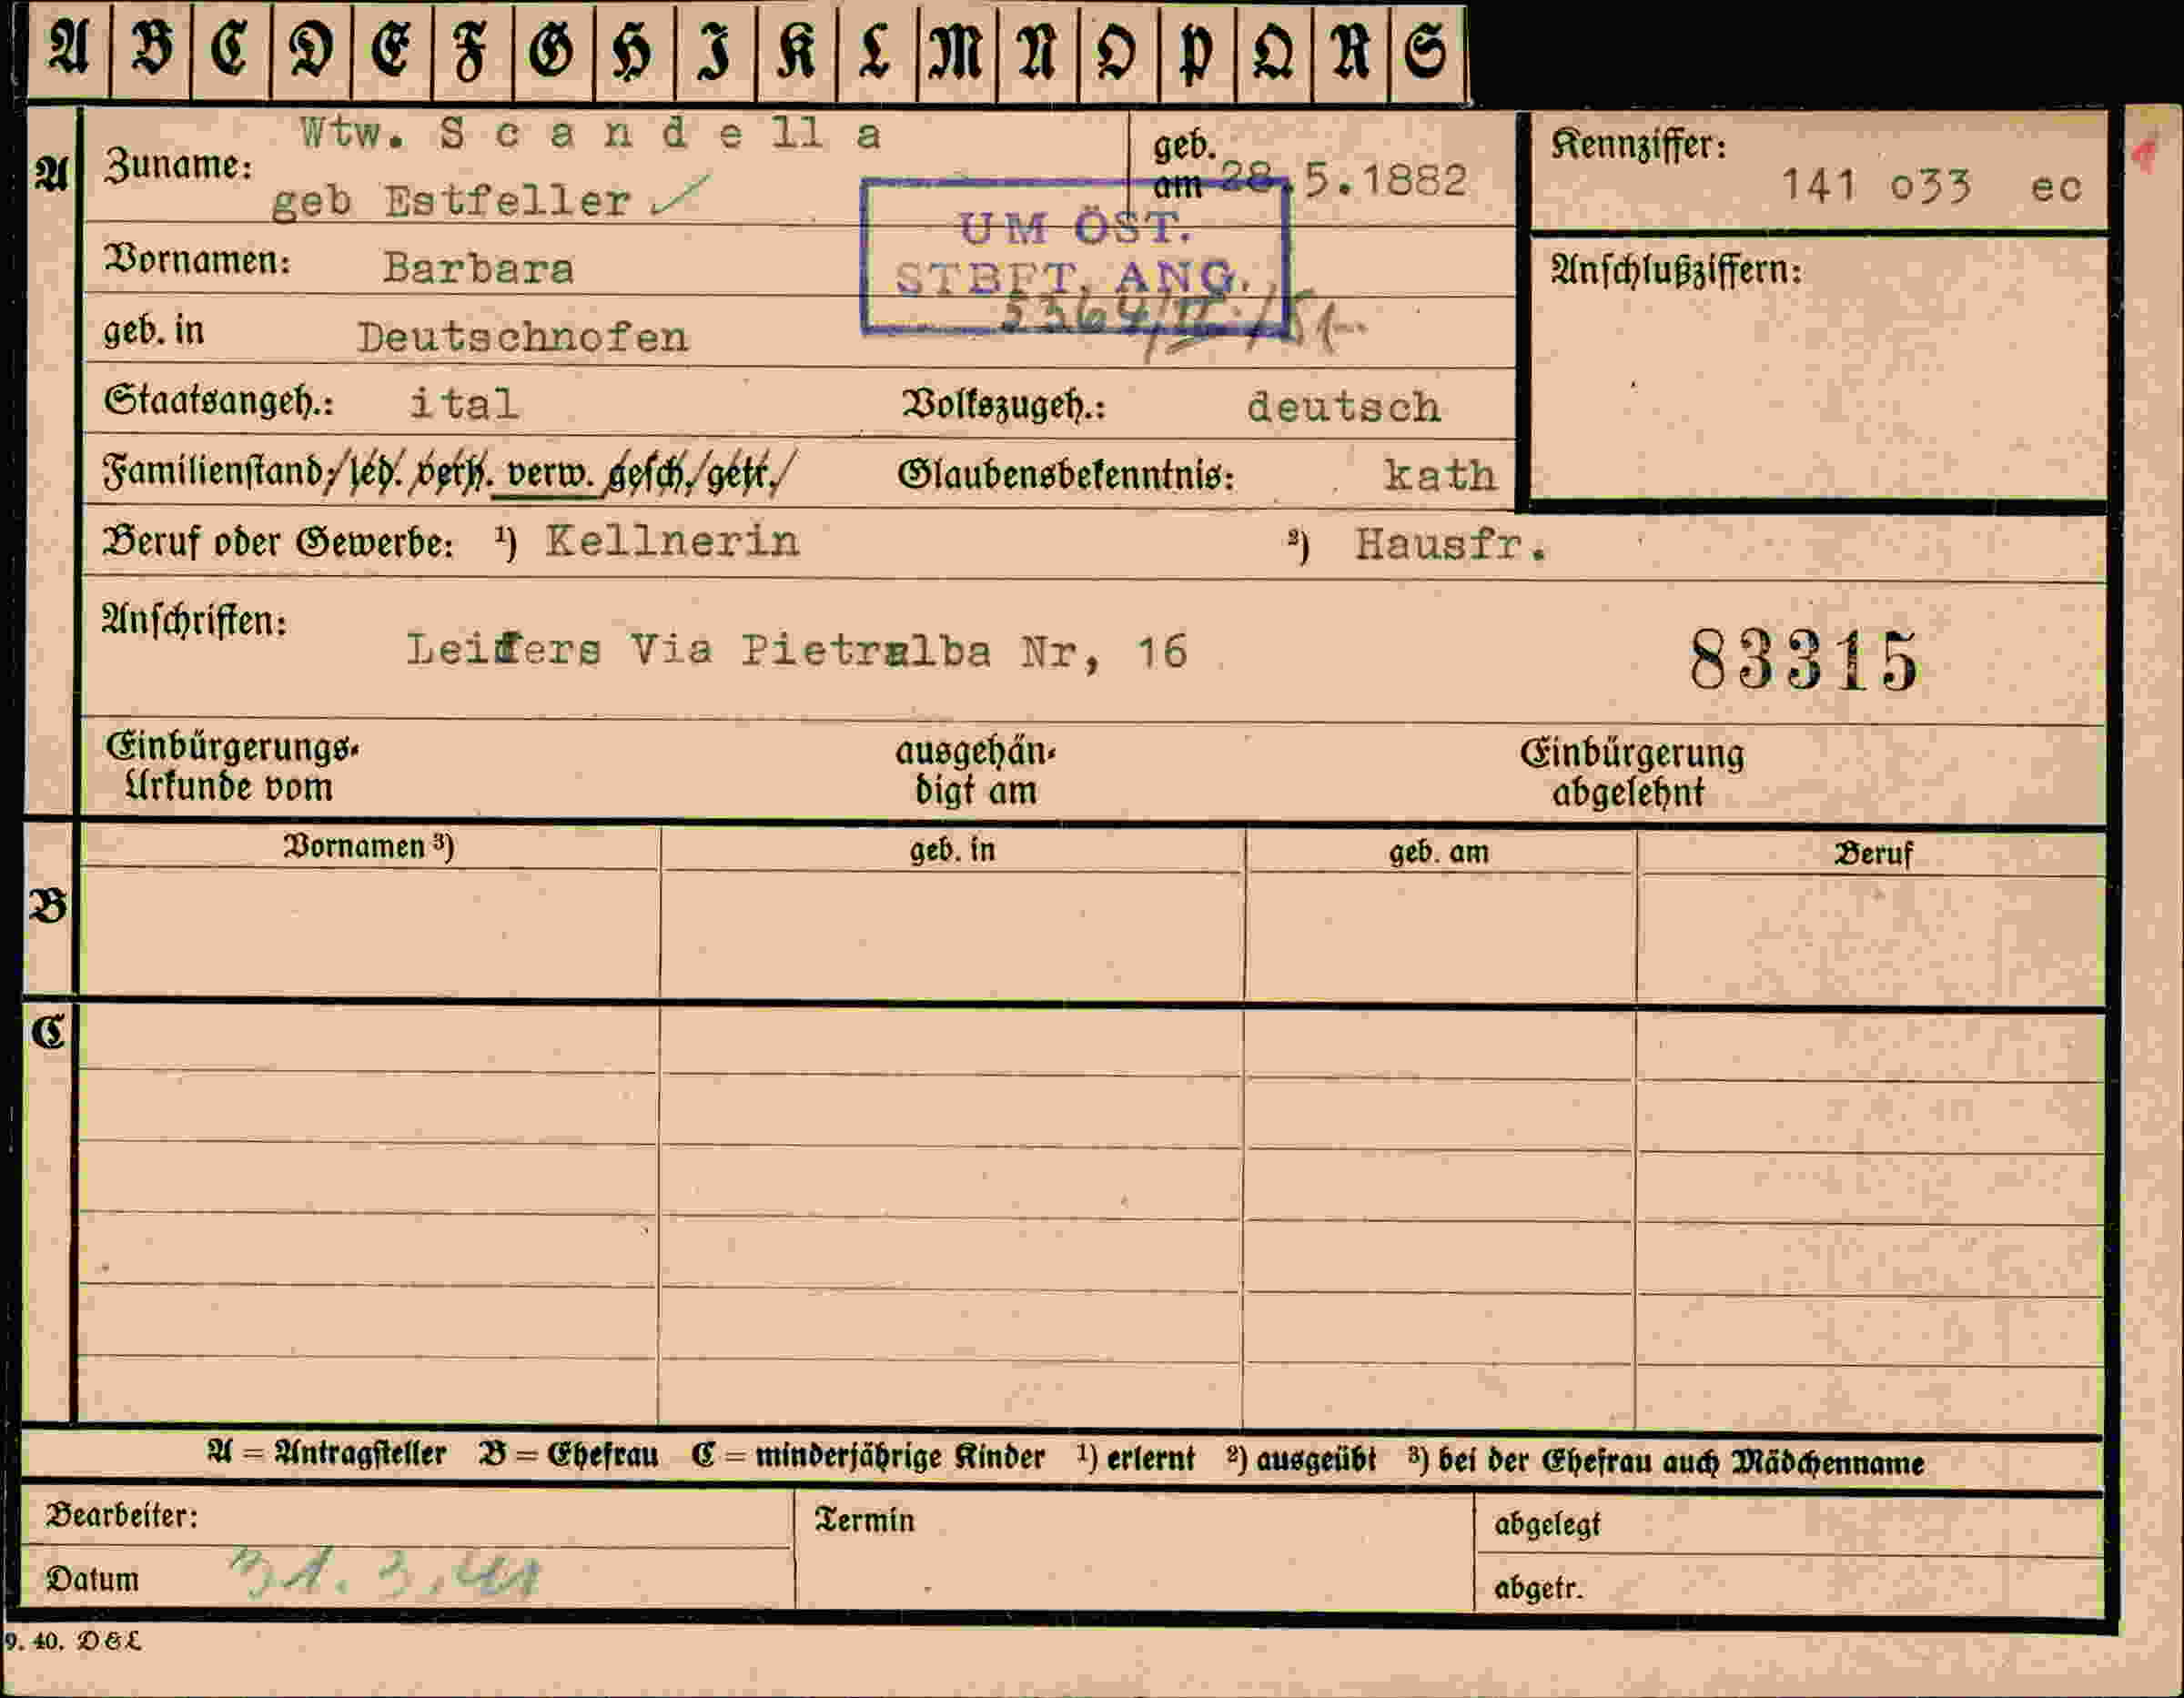 A B C D E F G H I K L M N O P Q R S
A
Zuname: Wtw. S c a n d e ll a
geb Estfeller ✓
geb.
am 28.5.1882
Kennziffer:
141 o33 ec
UM ÖST.
STBFT. ANG.
5364/II./51
Vornamen: Barbara
Anschlußziffern:
geb. in Deutschnofen
Staatsangeh.: ital Volkszugeh.: deutsch
Familienstand: led. verh. verw. gesch. getr. Glaubensbekenntnis: kath
Beruf oder Gewerbe: ¹) Kellnerin ²) Hausfr.
Anschriften:
Leifers Via Pietralba Nr, 16
83315
Einbürgerungs-
Urkunde vom
ausgehän-
digt am
Einbürgerung
abgelehnt
Vornamen ³) geb. in geb. am Beruf
B
C
A = Antragsteller B = Ehefrau C = minderjährige Kinder ¹) erlernt ²) ausgeübt ³) bei der Ehefrau auch Mädchenname
Bearbeiter:
Termin
abgelegt
Datum 31.3.41
abgetr.
9. 40. D&L